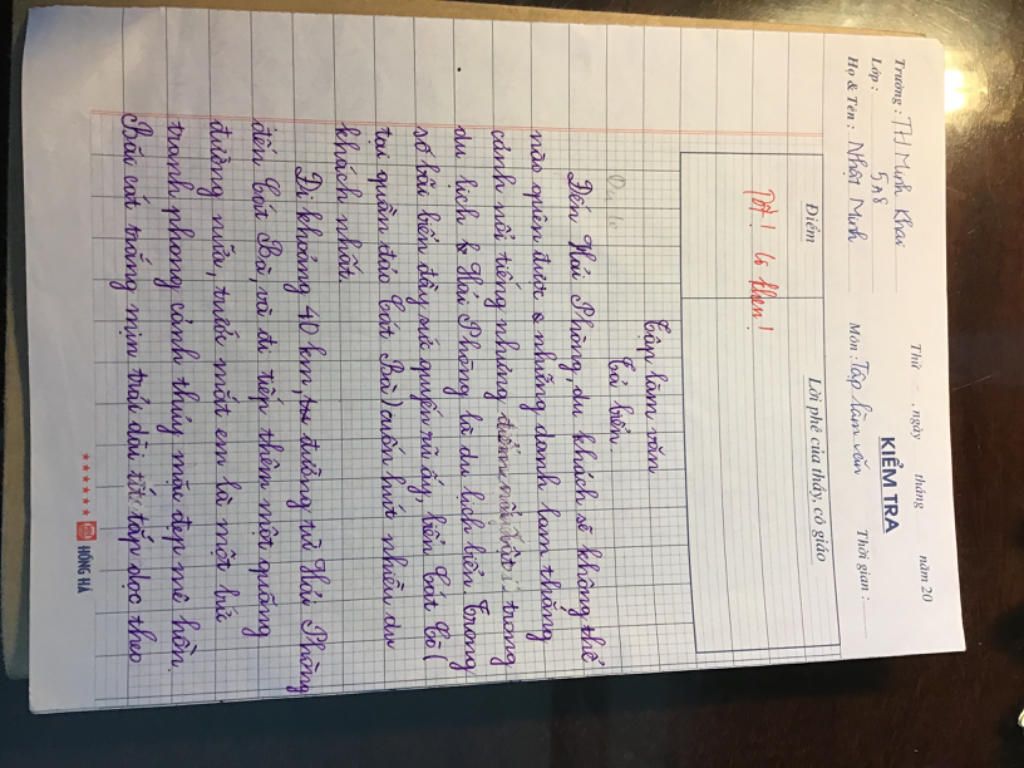 Trường : TH Minh Khai
Thứ , ngày tháng năm 20
Lớp : 5A8
KIỂM TRA
Họ & Tên : Nhật Minh
Môn : Tập làm văn
Thời gian :
Điểm
Lời phê của thầy, cô giáo
Tốt! Cô khen!
Tập làm văn
Tả biển.
Đến Hải Phòng, du khách sẽ không thể
nào quên được những danh lam thắng
cảnh nổi tiếng nhưng điểm nổi bật trong
du lịch Hải Phòng là du lịch biển. Trong
số bãi biển đầy mê quyến rũ ấy, biển Cát Cò (
tại quần đảo Cát Bà) cuốn hút nhiều du
khách nhất.
Đi khoảng 40 km, đường từ Hải Phòng
đến Cát Bà, và đi tiếp thêm một quãng
đường nữa, trước mắt em là một bức
tranh phong cảnh thủy mặc đẹp mê hồn.
Bãi cát trắng mịn trải dài tít tắp dọc theo
HỒNG HÀ